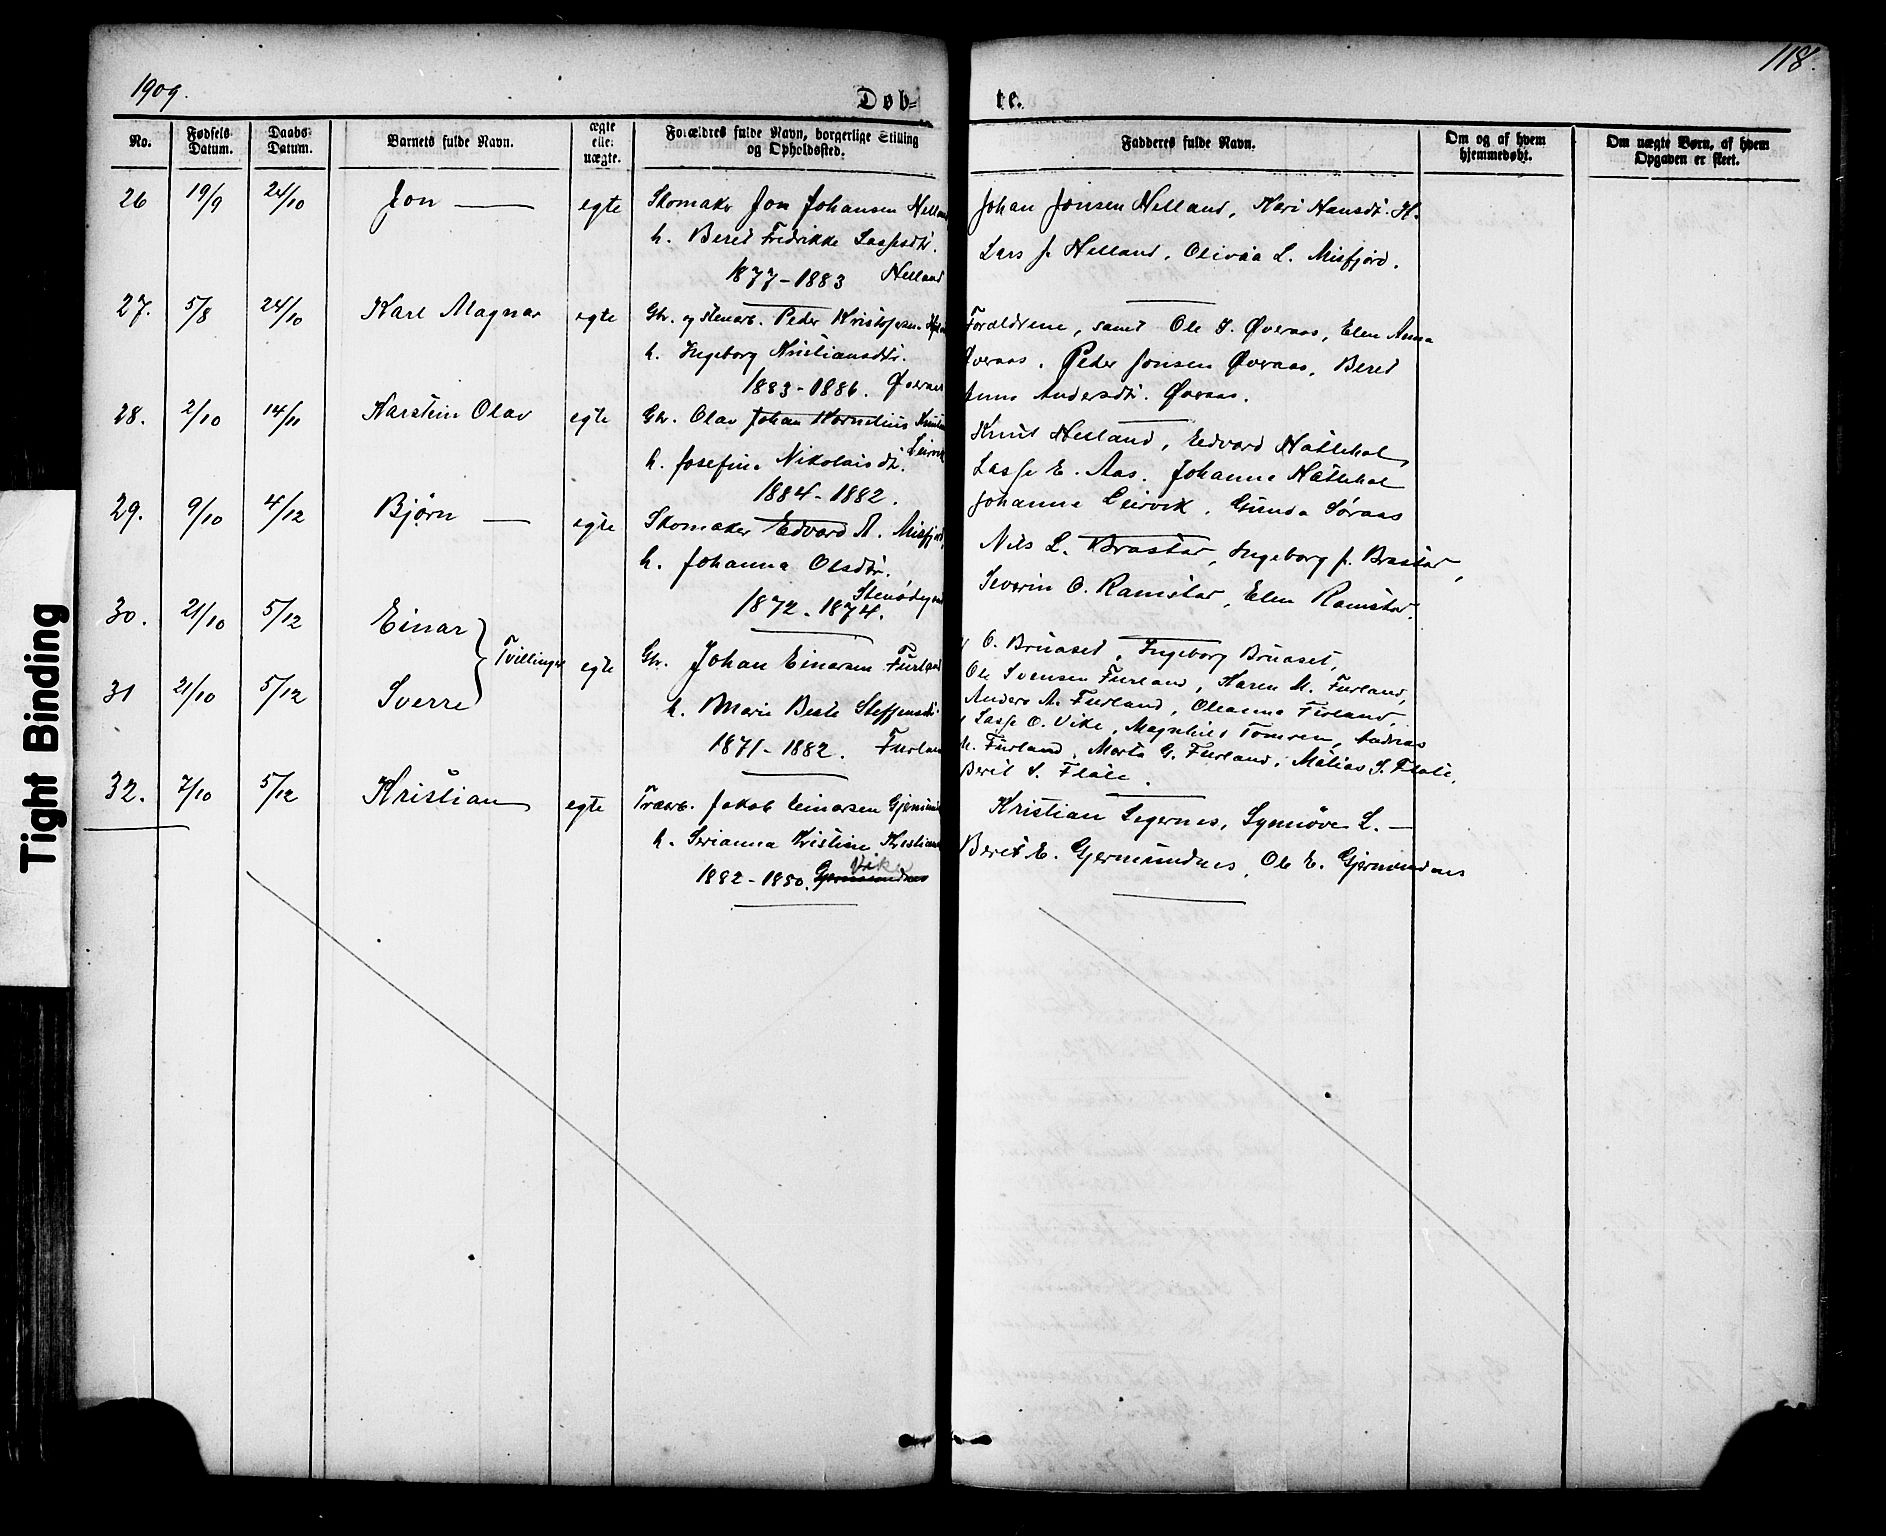 1909.
118.
Døb-
te.
No.
Fødsels Datum.
Daabs Datum.
Barnets fulde Navn.
ægte eller uægte.
Forældres fulde Navn, borgerlige Stilling og Opholdssted.
Fadderes fulde Navn.
Om og af hvem hjemmedøbt.
Om uægte Børn, af hvem Opgaven er skeet.
26 19/9 24/10 Jon — egte Skomaker Jon Johansen Helland
h. Beret Fredrikke Lassesdtr.
1877-1883 Helland
Johan Jonsen Helland, Kari Hansdtr. H.
Lars J. Helland, Olivia L. Misfjord.
27. 5/8 24/10 Karl Magnar egte Gbr. og stenarb. Peder Kristofersen
h. Ingeborg Kristiansdtr.
1883-1886. Øveraas
Forældrene, samt Ole J. Øveraas, Elen Anna
Øveraas, Peder Jonsen Øveraas, Beret
Anne Andersdtr. Øveraas.
28. 2/10 14/11 Karstein Olav egte Gbr. Olav Johan Kornelius
Leirvik
h. Josefine Nikolaisdtr.
1884-1882.
Knut Helland, Edvard Hattehol
Lasse E. Aas. Johanna Hattehol
Johanna Leirvik, Gunda Søraas
29. 9/10 4/12 Bjørn — egte Skomaker Edvard A. Misfjord,
h. Johanna Olsdtr.
1872-1874.
Nils L. Brastad, Ingeborg J. Brastad,
Severin O. Ramstad, Elen Ramstad.
30. 21/10 5/12 Einar
Tvillinger
31 21/10 5/12 Sverre
egte Gbr. Johan Einarsen Furland
h. Marie Beate Steffensdtr.
1871-1882. Furland
O. Bruaset, Ingeborg Bruaset,
Ole Svensen Furland, Karen M. Furland,
Anders A. Furland, Oleanna Furland,
Lasse O. Vike, Magnhild Tomren, Andreas
M. Furland, Marta G. Furland, Matias S. Flate,
Berit S. Flate.
32. 7/10 5/12 Kristian egte Træarb. Jakob Einarsen Gjermundnes
h. Serianna Kristine
Vike
1882-1880. Gjermundnes
Kristian Segernes, Synnøve L. —
Berit E. Gjermundnes, Ole E. Gjermundnes
Tight Binding